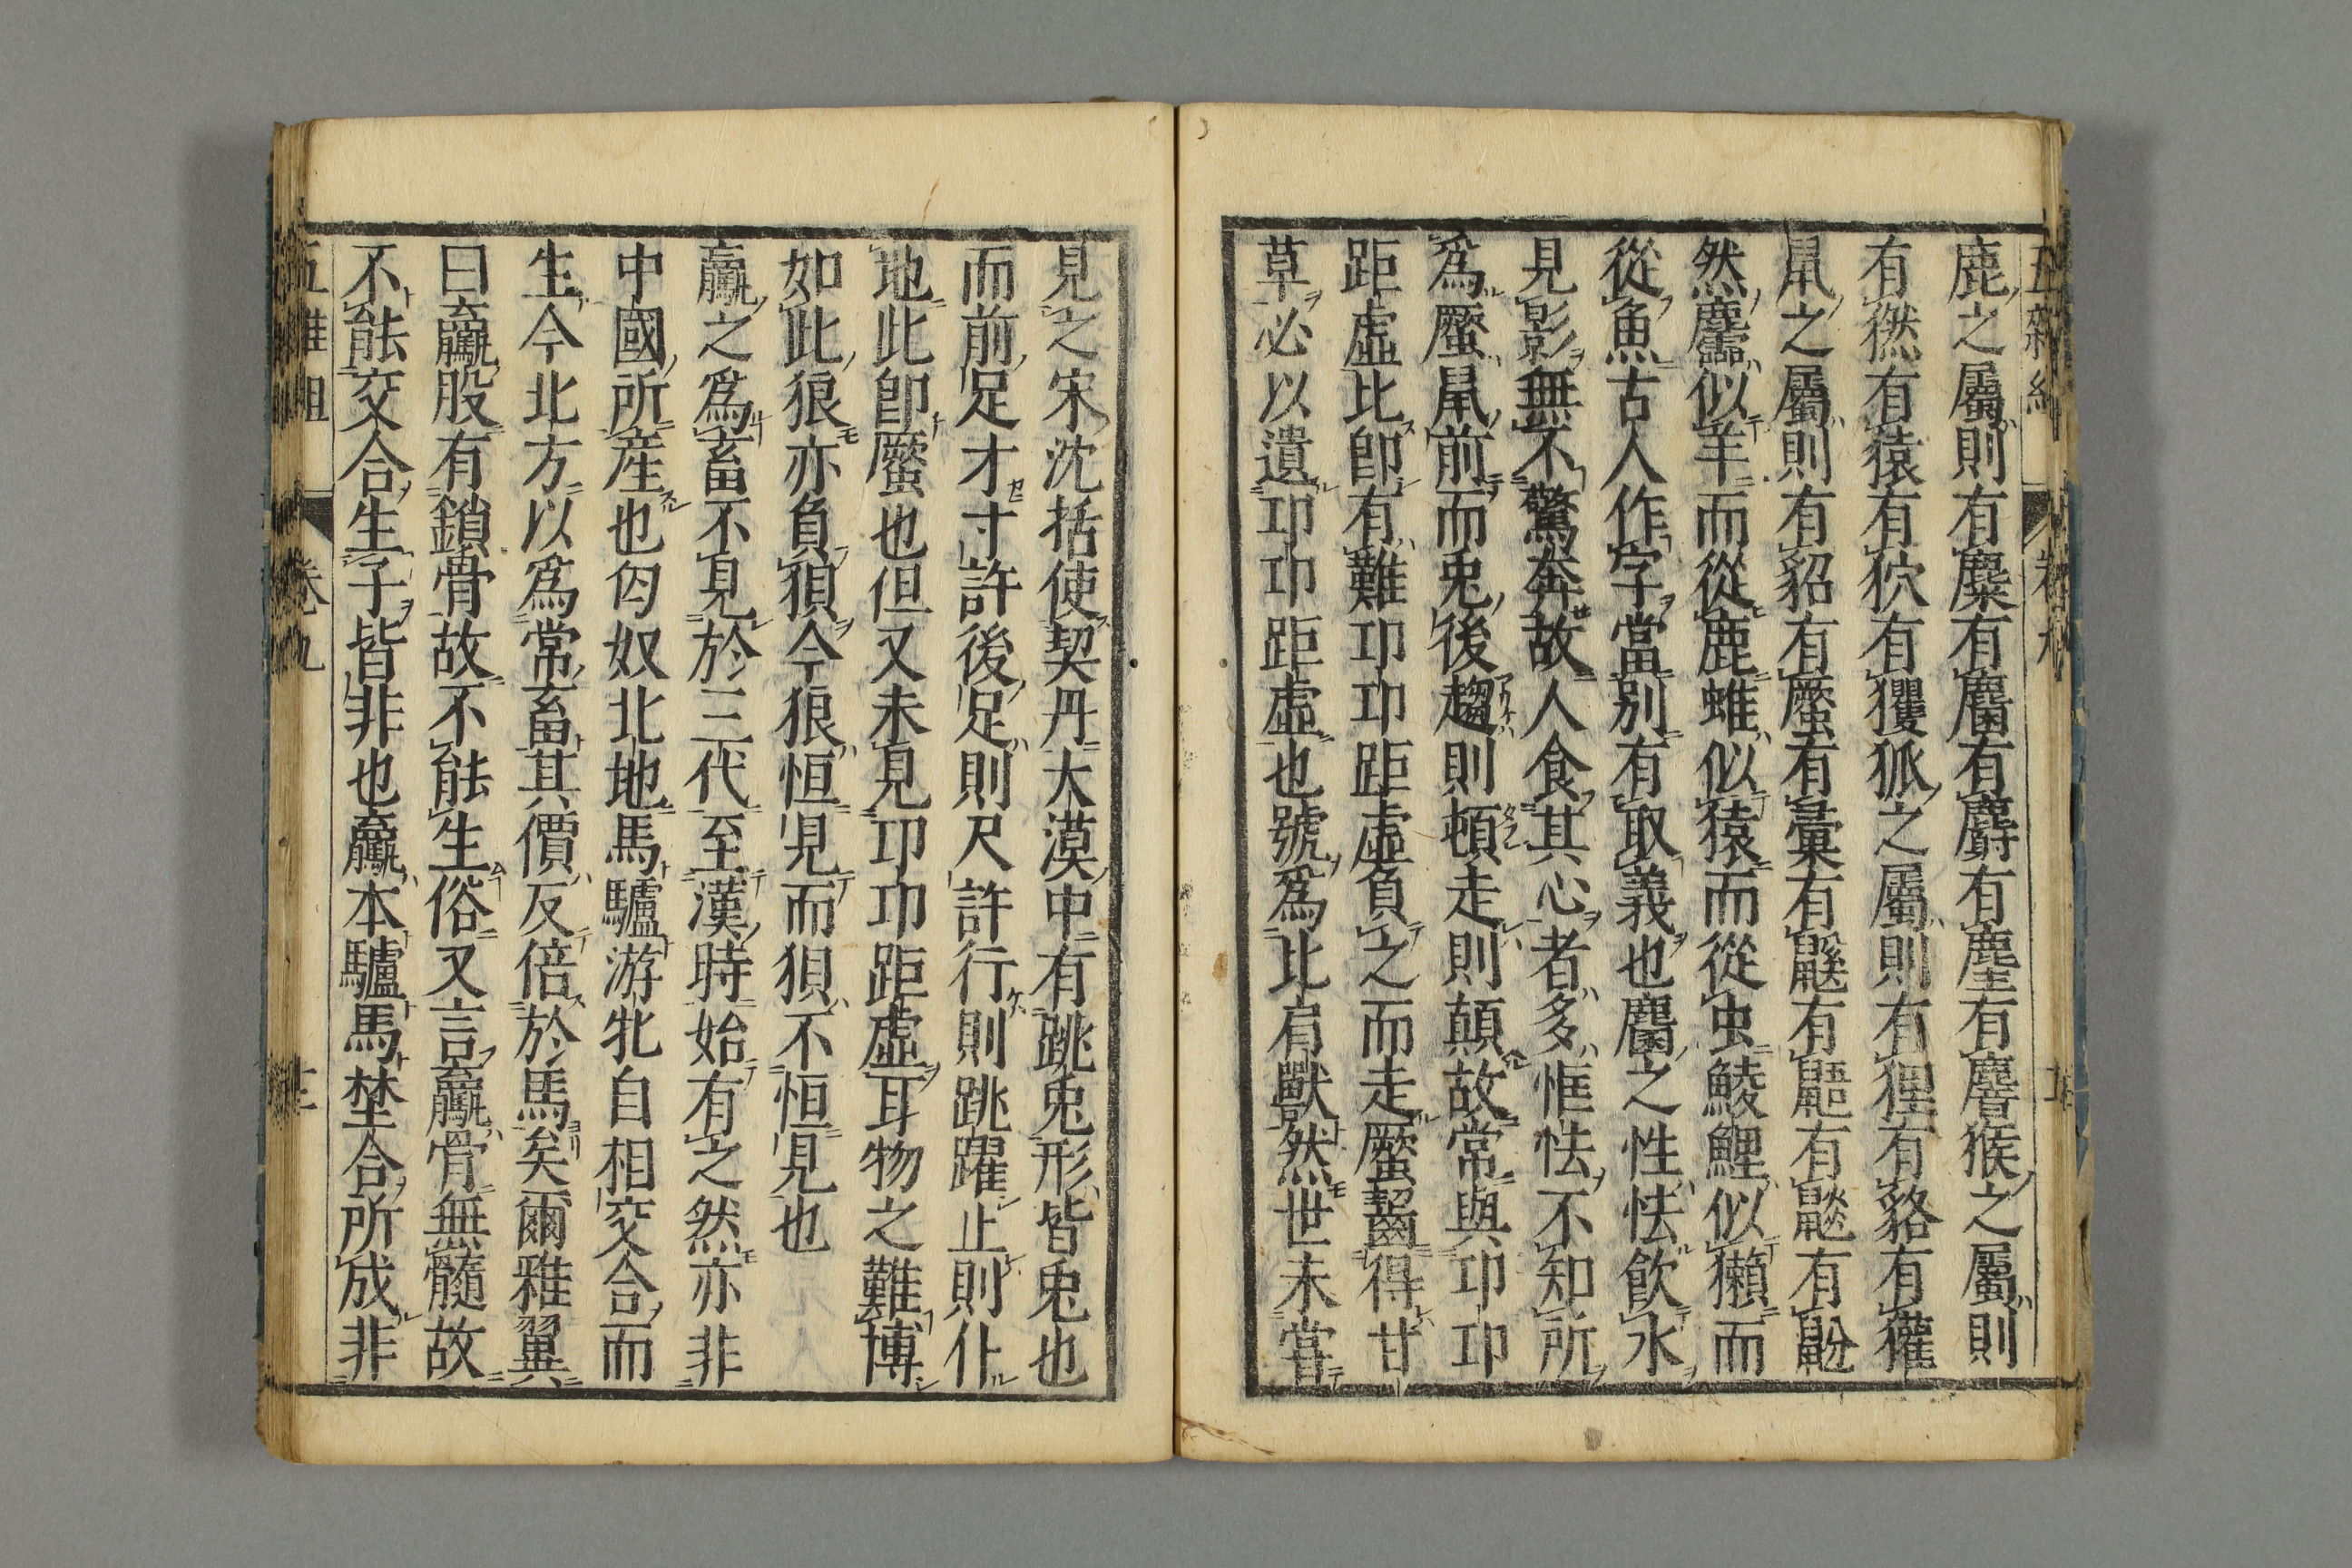 鹿之屬則有麋有麕有麝有麈有麏猴之屬則
有㷼有猿有狖有玃狐之屬則有狸有貉有獾
鼠之屬則有貂有蟨有彙有鼷有鼯有鼶有鼢
然麢似羊而從鹿蜼似猿而從虫鯪鯉似獺而
從魚古人作字當別有取義也麕之性怯飲水
見影無不驚奔故人食其心者多恇怯不知所
爲蟨鼠前而兎後趨則頓走則顛故常與卭卭
距虛比卽有難卭卭距虛負之而走蟨齧得甘
草必以遺卭卭距虛也號爲比肩獸然世未嘗
見之宋沈括使契丹大漠中有跳兎形皆兎也
而前足才寸許後足則尺許行則跳躍止則仆
地此卽蟨也但又未見卭卭距虛耳物之難博
如此狼亦負狽今狼恒見而狽不恒見也
驘之爲畜不見於三代至漢時始有之然亦非
中國所産也匈奴北地馬驢游牝自相交合而
生今北方以爲常畜其價反倍於馬矣爾雅翼
曰驘股有鎖骨故不能生俗又言驘骨無髓故
不能交合生子皆非也驘本驢馬埜合所成非
卷九